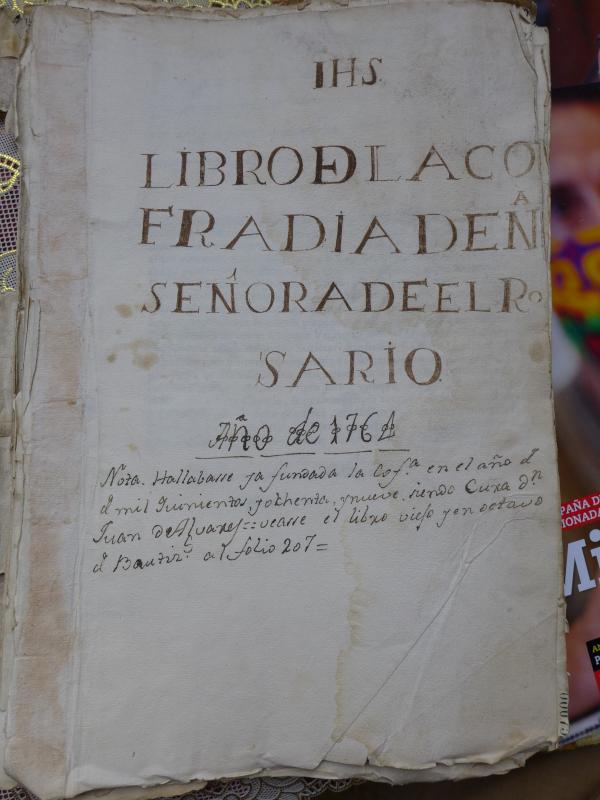 IHS
LIBRO DE LA CO
FRADIA DE Ñ A
SEÑORA DE EL RO
SARIO
Año de 1761
Nota. Hallabasse ya fundada la Cofª en el año d
d mil Quinientos, y ochenta, y nueve, siendo Cura Dn
Juan de Alvares:: veasse el libro viejo y en octavo
d Bautizº al folio 207=
PAÑA DE
IONADA
Mi